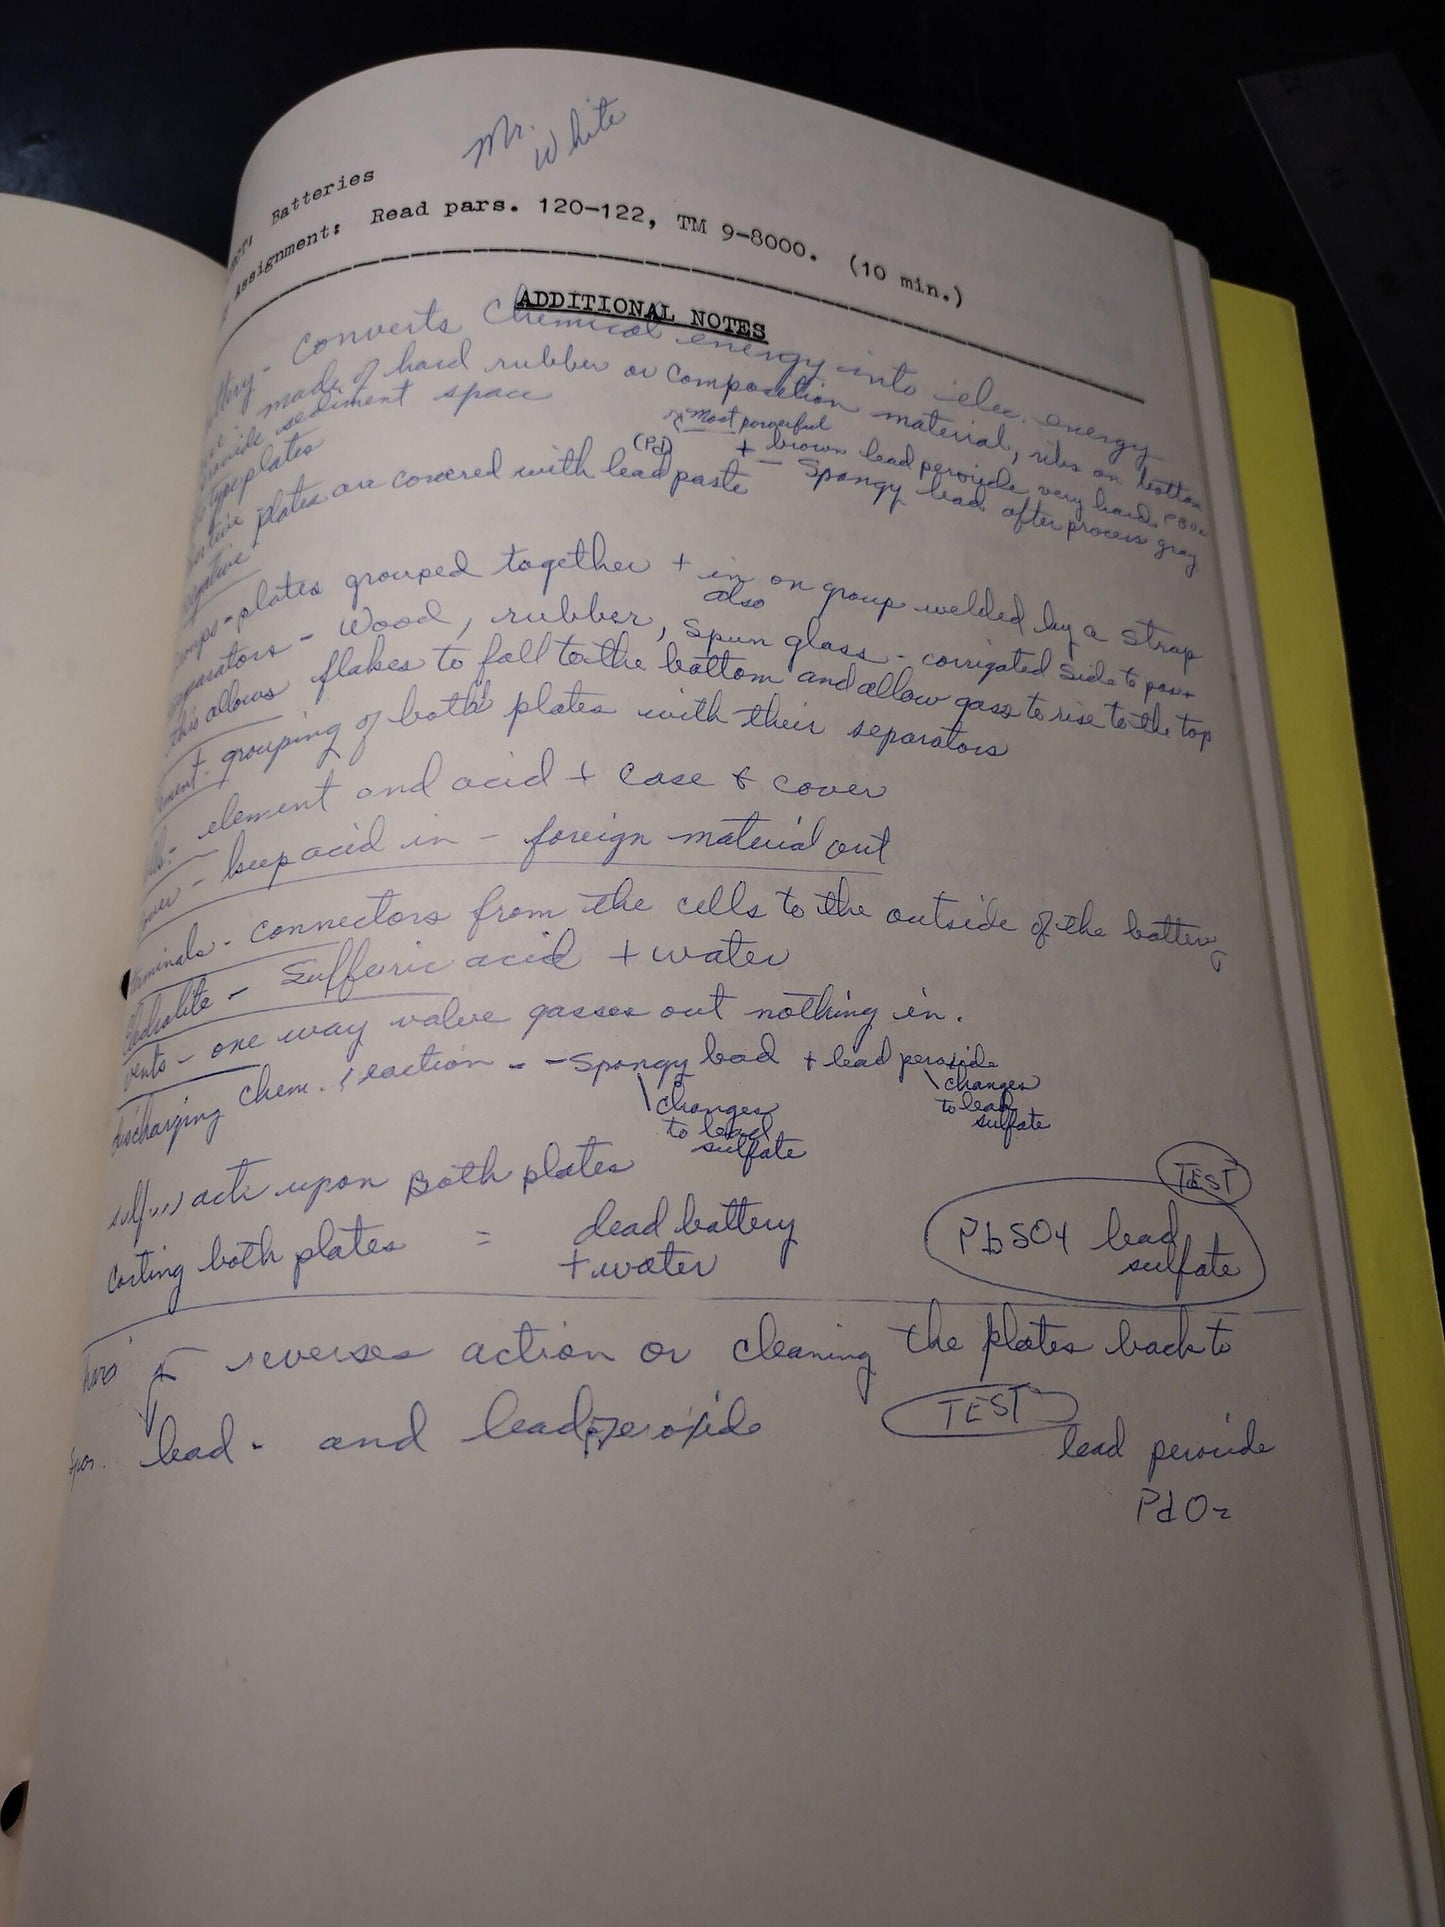 Mr.
White
Batteries
Assignment: Read pars. 120-122, TM 9-8000. (10 min.)
ADDITIONAL NOTES
converts chemical energy into elec. energy
made of hard rubber or composition material, ribs on bottom
provide sediment space
most powerful
type plates
(Pd)
+ brown lead peroxide very hard
plates are covered with lead paste
- Spongy lead after process gray
negative
plates grouped together + in on group welded by a strap
also
separators - Wood, rubber, spun glass - corrigated side to pos +
this allows flakes to fall to the bottom and allow gass to rise to the top
grouping of both plates with their separators
element and acid + case & cover
keep acid in - foreign material out
connectors from the cells to the outside of the battery
Sulferic acid + water
vents - one way valve gasses out nothing in.
discharging chem. reaction - - spongy lead + lead peroxide
changes
to lead
sulfate
changes
to lead
sulfate
acti upon Both plates
TEST
coting both plates = dead battery
+ water
PbSO4 lead
sulfate
reverses action or cleaning the plates back to
lead - and lead peroxide
TEST
lead peroxide
PdO2